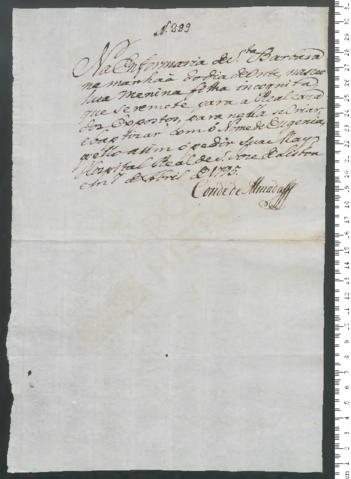 N. 899
Na Enfermaria de Sta. Barbara
na manhaã do dia de onte, nasceu
hua menina filha incognita
que se remete, para a Real caza
dos Expostos, para nella se criar,
e baptizar com o Nome de Eugenia,
pello asim pedir sua May
Hospital Real de S. Joze de Lisboa
de Abril de 1795.
Conde de Almada